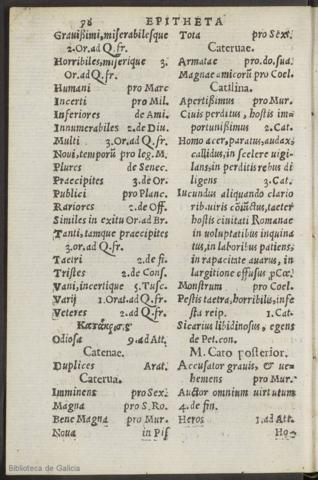 38 EPITHETA
Grauißimi, miserabilesque
2.Or.ad Q.fr.
Horribiles, miserique 3.
Or.ad Q.fr.
Humani pro Marc
Incerti pro Mil.
Inferiores de Ami.
Innumerabiles 2.de Diu.
Multi 3.Or.ad Q.fr.
Noui, temporũ pro leg.M.
Plures de Senec.
Praecipites 3.de Or.
Publici pro Planc.
Rariores 2.de Off.
Similes in exitu Or.ad Br.
Tanti, tamque praecipites
3.or.ad Q.fr.
Taetri 2.de fi.
Tristes 2.de Cons.
Vani, incertique 5.Tusc.
Varij 1.Orat.ad Q.fr.
Veteres 2.ad Q.fr.
Odiosa 9.ad Att.
Catenae.
Duplices Arat.
Caterua.
Imminens pro Sex.
Magna pro S.Ro.
Bene Magna pro Mur.
Noua in Pis
Tota pro Sext.
Cateruae.
Armatae pro.do.sua.
Magnae amicorũ pro Coel.
Catilina.
Apertißimus pro Mur.
Ciuis perditus, hostis im-
portunißimus 2.Cat.
Homo acer, paratus, audax,
callidus, in scelere uigi-
lans, in perditis rebus di
ligens 3.Cat.
Iucundus aliquando clario
rib.uiris cõiũctus, taeter
hostis ciuitati Romanae
in uoluptatibus inquina
tus, in laboribus patiens,
in rapacitate auarus, in
largitione effusus ꝓ Coe.
Monstrum pro Coel.
Pestis taetra, horribilis, infe
sta reip. 1.Cat.
Sicarius libidinosus, egens
de Pet.con.
M. Cato posterior.
Accusator grauis, & ue-
hemens pro Mur.
Auctor omnium uirtutum
4.de fin.
Heros 1.ad Att.
Ho-
Biblioteca de Galicia